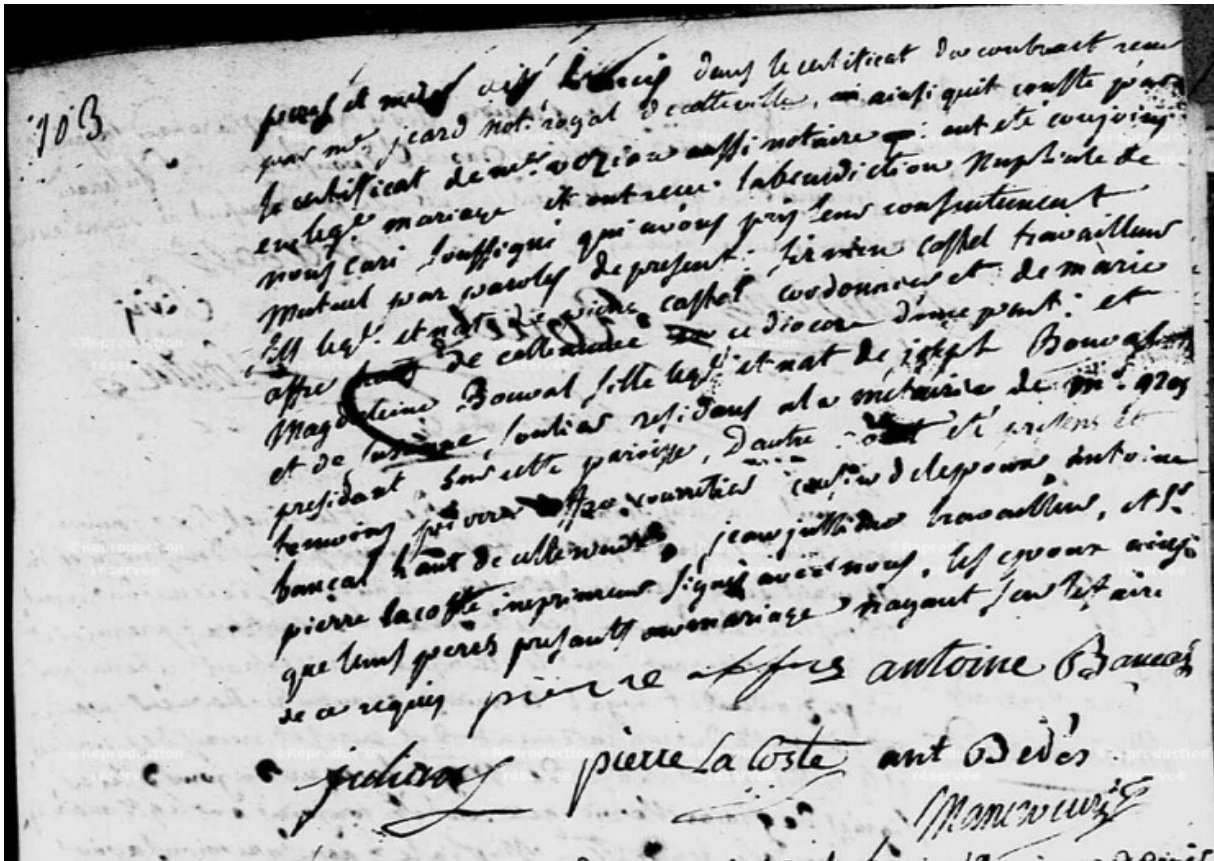 103
peres et meres dans le certificat du contract reçu
par me jcard notre royal de calleville, ainsi quil conste par
le certificat de mr veziau aussi notaire ont eté conjoins
en leg. mariage et ont reçu la benediction Nuptiale de
nous curé soussigné qui avons pris leur consentement
mutuel par paroles de present. firmin castel travailleur
fils legt. et nat. de castel cordonnier et de marie
affre de ce diocese d'une part. et
Magdeleine Bouval fille legt. et nat de joseph Bouval
et de soulier residans a la métairie de mr. gros
president, sur cette paroisse, d'autre ont été presens et
temoins pierre affre courretier cousin de lepoux antoine
bancal jean jullien travailleur, et Sr.
pierre lacoste imprimeur signés avec nous, les epoux ainsi
que leurs peres presants au mariage nayant seu le faire
de ce requis pierre affre antoine Bancal
julien pierre La Coste ant Bedos